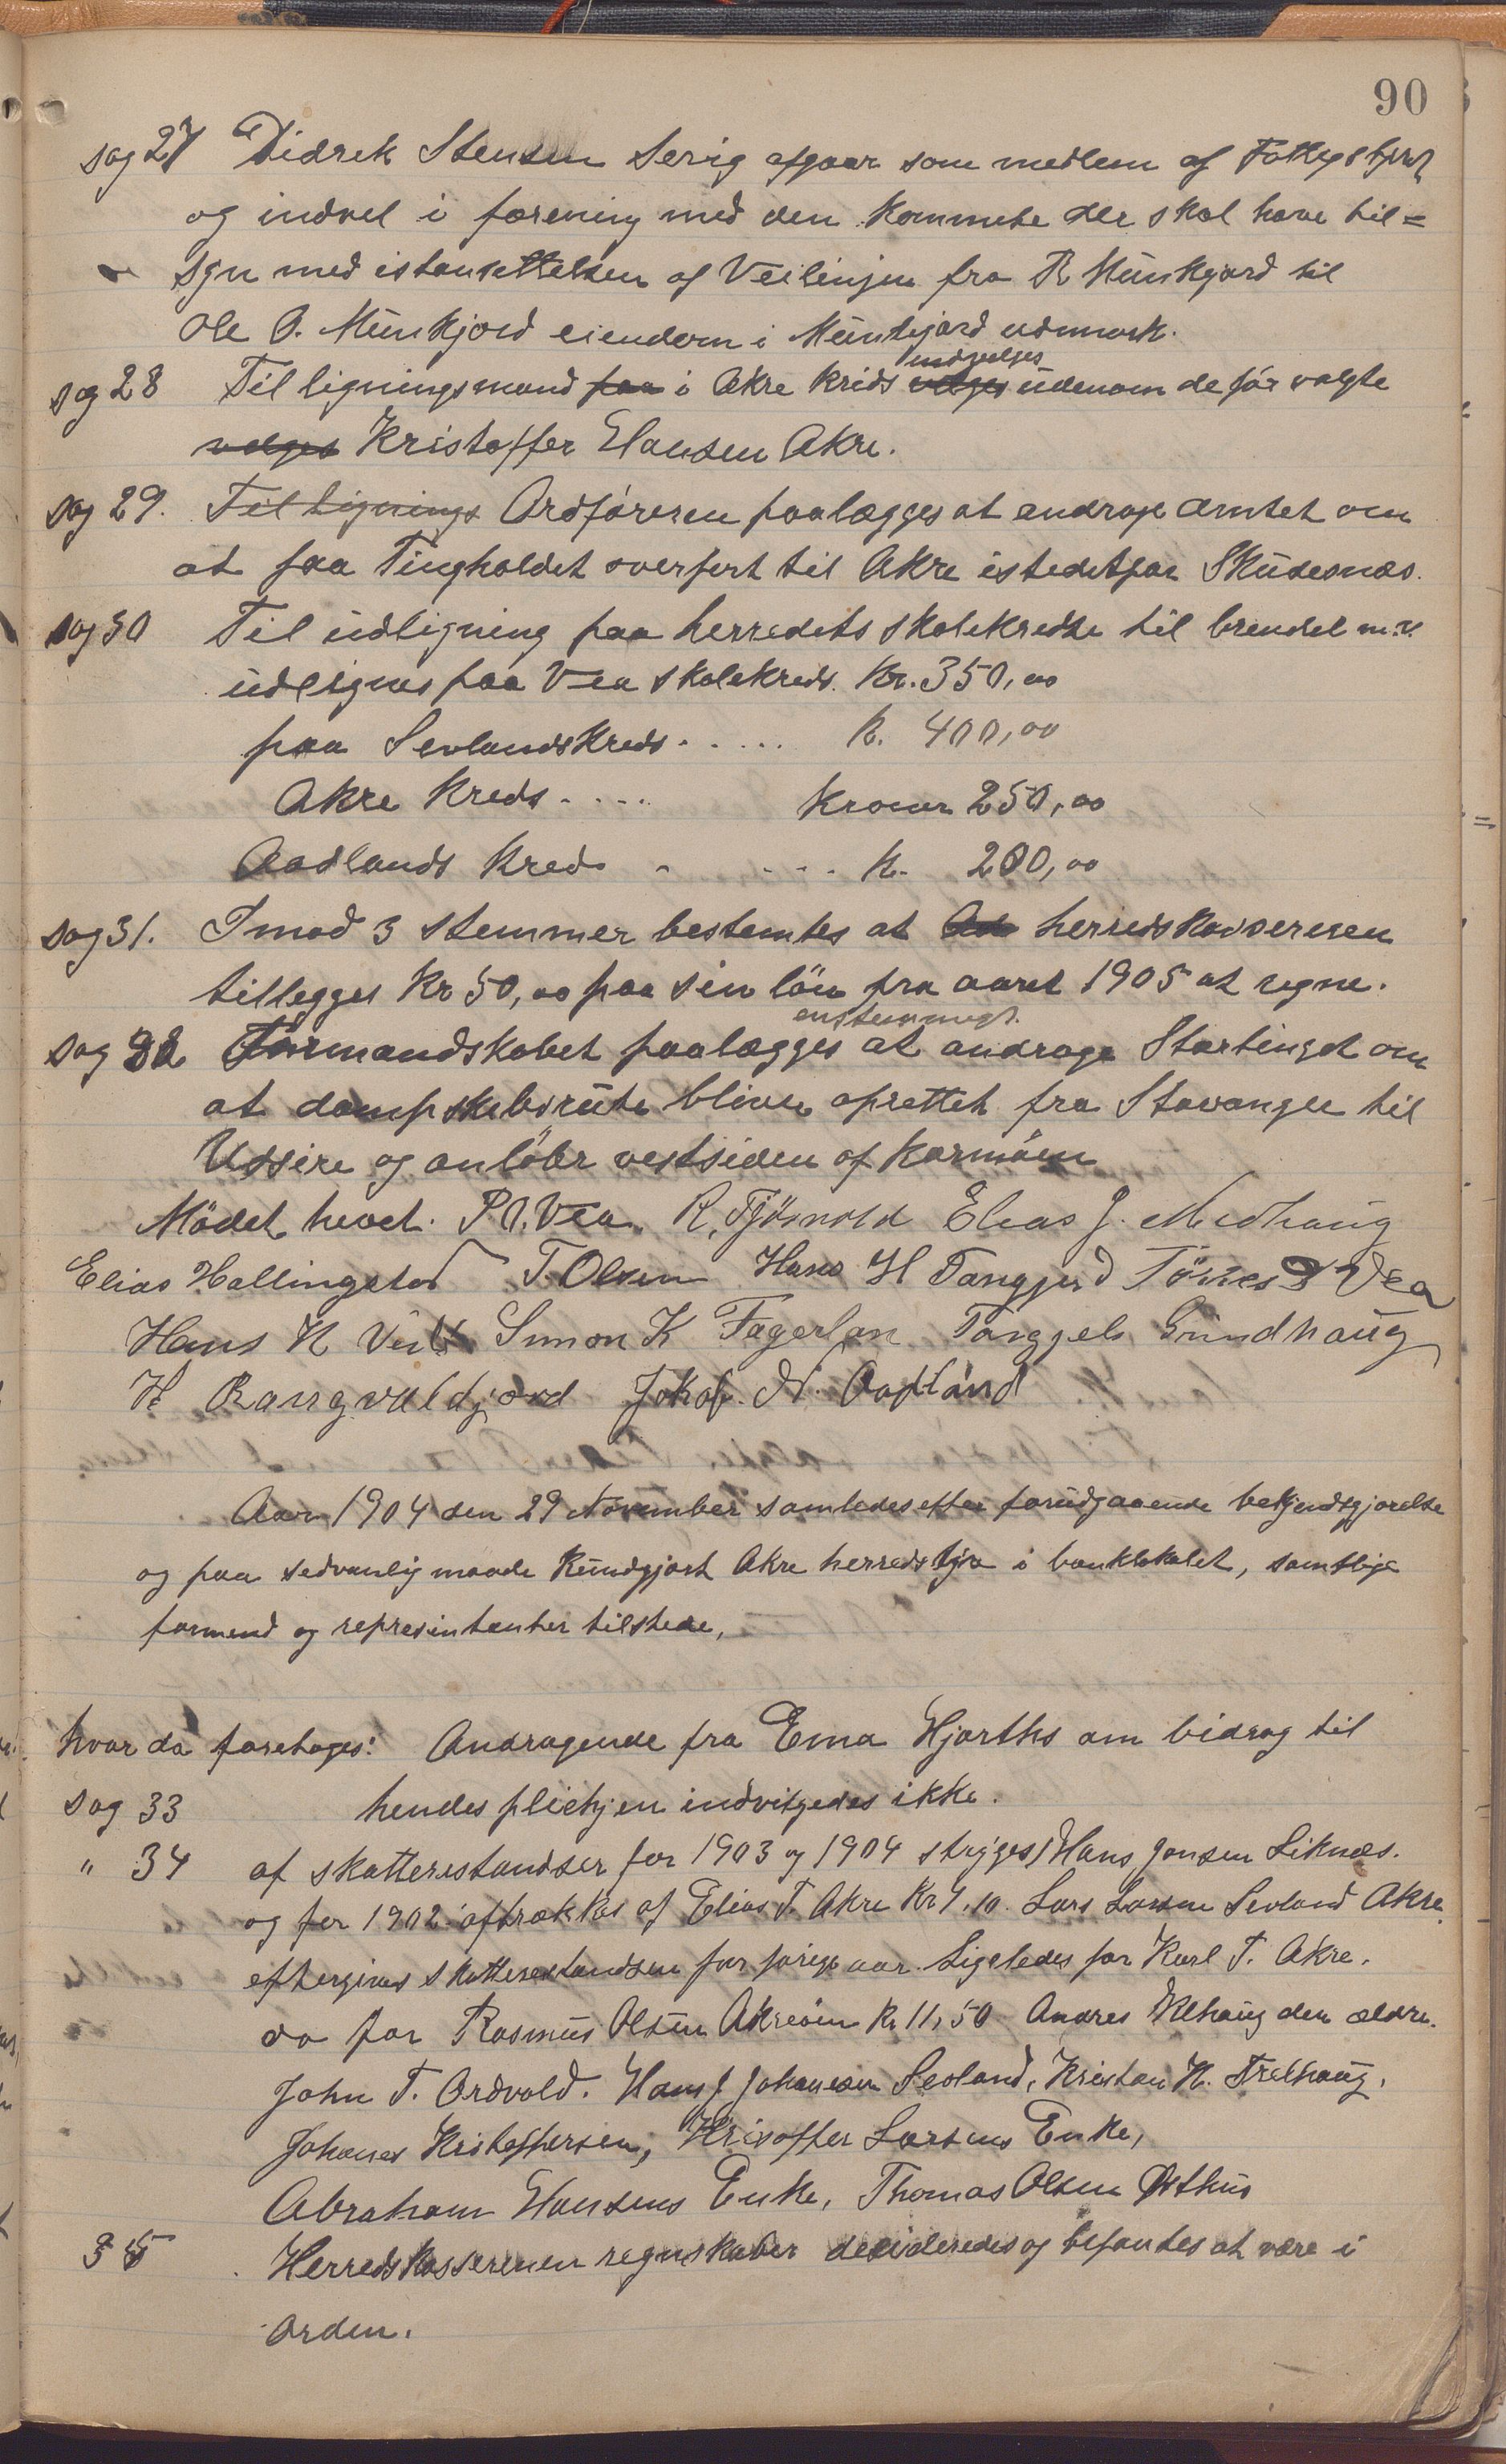 90
sag 27 Didrek Stensen Servig afgaar som medlem af
og indvel i forening med den Kommete der skal have til=
syn med istansettelsen af Veilinjen fra R Munkjord til
Ole O. Munkjord eiendom i Munkjord udmark.
sag 28 Til ligningsmand paa i Akre Krids vælges indvælges udenom de før valgte
vælges Kristoffer Hansen Akre.
sag 29. Til lignings Ordføreren paalægges at androge Amtet om
at faa Tingholdet overfert til Akre istedetfor Skudesnæs.
sag 30 Til udligning paa herredets skolekredse til brendsel m.v.
udlignes paa Vea skolekreds. Kr. 350,00
paa Sevlandskreds. .... K. 400,00
Akre Kreds.... Kroner 250,00
Aadlands Kreds - ... K. 200,00
sag 31. Imod 3 stemmer bestemtes at herredskassereren
tillegges Kr 50,00 paa sin løn fra aaret 1905 at regne.
sag 32 Formandskabet paalægges enstemmigt. at androge Stortinget om
at dampskibsrute bliver oprettet fra Stavanger til
Udsire og anløber vestsiden af Karmøen
Mødet hevet. P.O. Vea. R. Tjøsvold Elias J. Medhaug
Elias Hallingstad T. Olsen Hans H Tangjerd Tönes Vea
Hans H Simon K Fagerlan Torgjels Grindhaug
H Rangvaldjord Jokob. N. Aadland
Aar 1904 den 29 November samledes efter forudgaaende bekjendtgjorelse
og paa sedvanlig maade Kundgjort Akre herredstyre i banklokalet, samtlige
formend og represententer tilstede,
hvor da foretoges: Andragende fra Ema Hjorths om bidrag til
sag 33 hendes pliehjem indvilgedes ikke.
" 34 af skatterestandser for 1903 og 1904 stryges Hans Jonsen Liknæs.
og for 1902 aftrækkes af Elias T. Akre Kr 1,10. Lars Larsen Sevland Akre
eftergives skatterestandsen for forige aar. Ligeledes for Karl T. Akre.
do for Rasmus Olsen Akreøen Kr 11,50 Andres den ældre.
John T. Ordvold. Hans J Johanesen Sevland, Kristan K. Trelhaug,
Johanes Kristoffersen, Krisoffer Larsens Enke,
Abraham Hansens Enke, Thomas Olsen Østhus
35 Herredskassereren regnskaber desideredes og befantes at være i
orden.